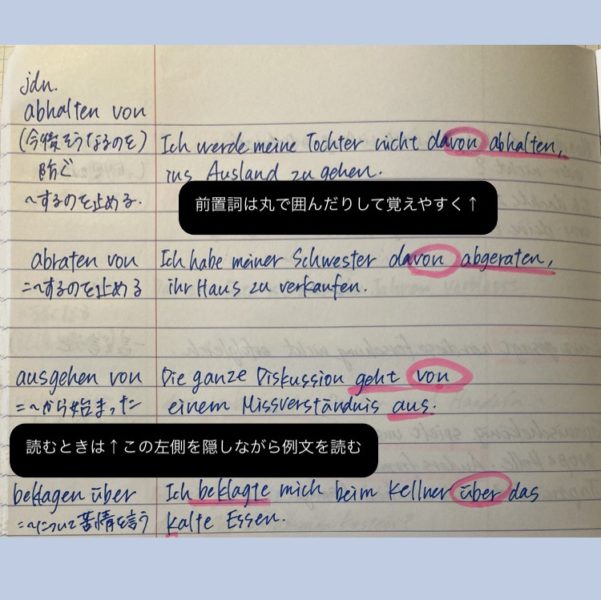 jdn.
abhalten von
(今後そうなるのを) Ich werde meine Tochter nicht davon abhalten,
防ぐ ins Ausland zu gehen.
〜するのを止める.
前置詞は丸で囲んだりして覚えやすく↑
abraten von Ich habe meiner Schwester davon abgeraten,
=〜するのを止める ihr Haus zu verkaufen.
ausgehen von Die ganze Diskussion geht von
=〜から始まった einem Missverständnis aus.
読むときは↑この左側を隠しながら例文を読む
beklagen über Ich beklagte mich beim Kellner über das
=〜について苦情を言う kalte Essen.